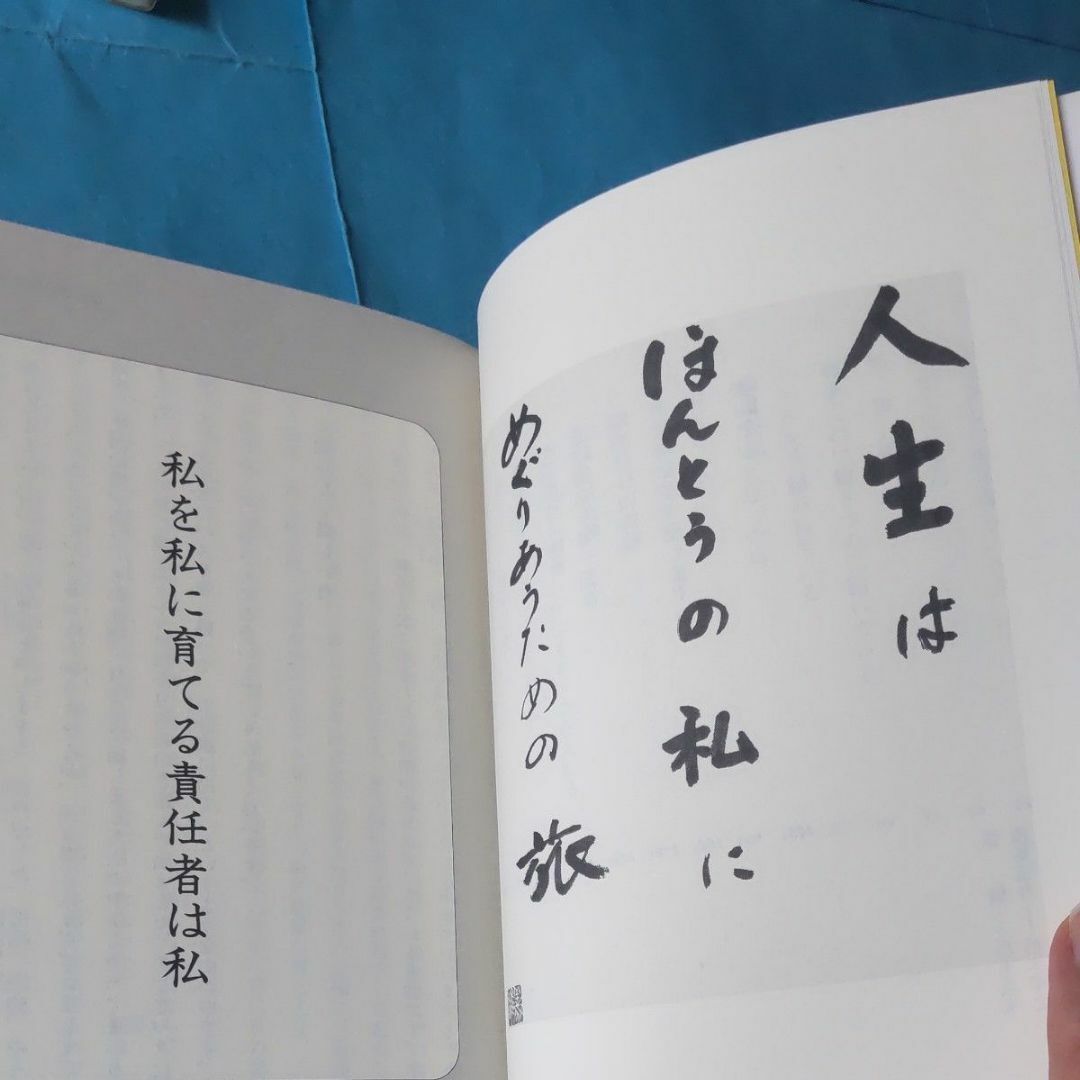 人生は
ほんとうの私に
めぐりあうための旅
私を私に育てる責任者は私